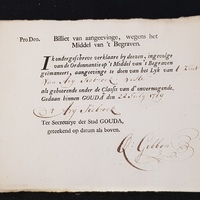 Pro Deo. Billiet van aangeevinge, wegens het
Middel van 't Begraven.
IK ondergeschreve verklaare by deezen, ingevolge
van de Ordonnantie op 't Middel van 't Begraven
geëmaneert, aangeevinge te doen van het Lyk van 't kind
van Ary
als gehoorende onder de Classis van d'onvermogende.
Gedaan binnen GOUDA den July
Ary
Ter Secretarye der Stad GOUDA,
geteekend op datum als boven.